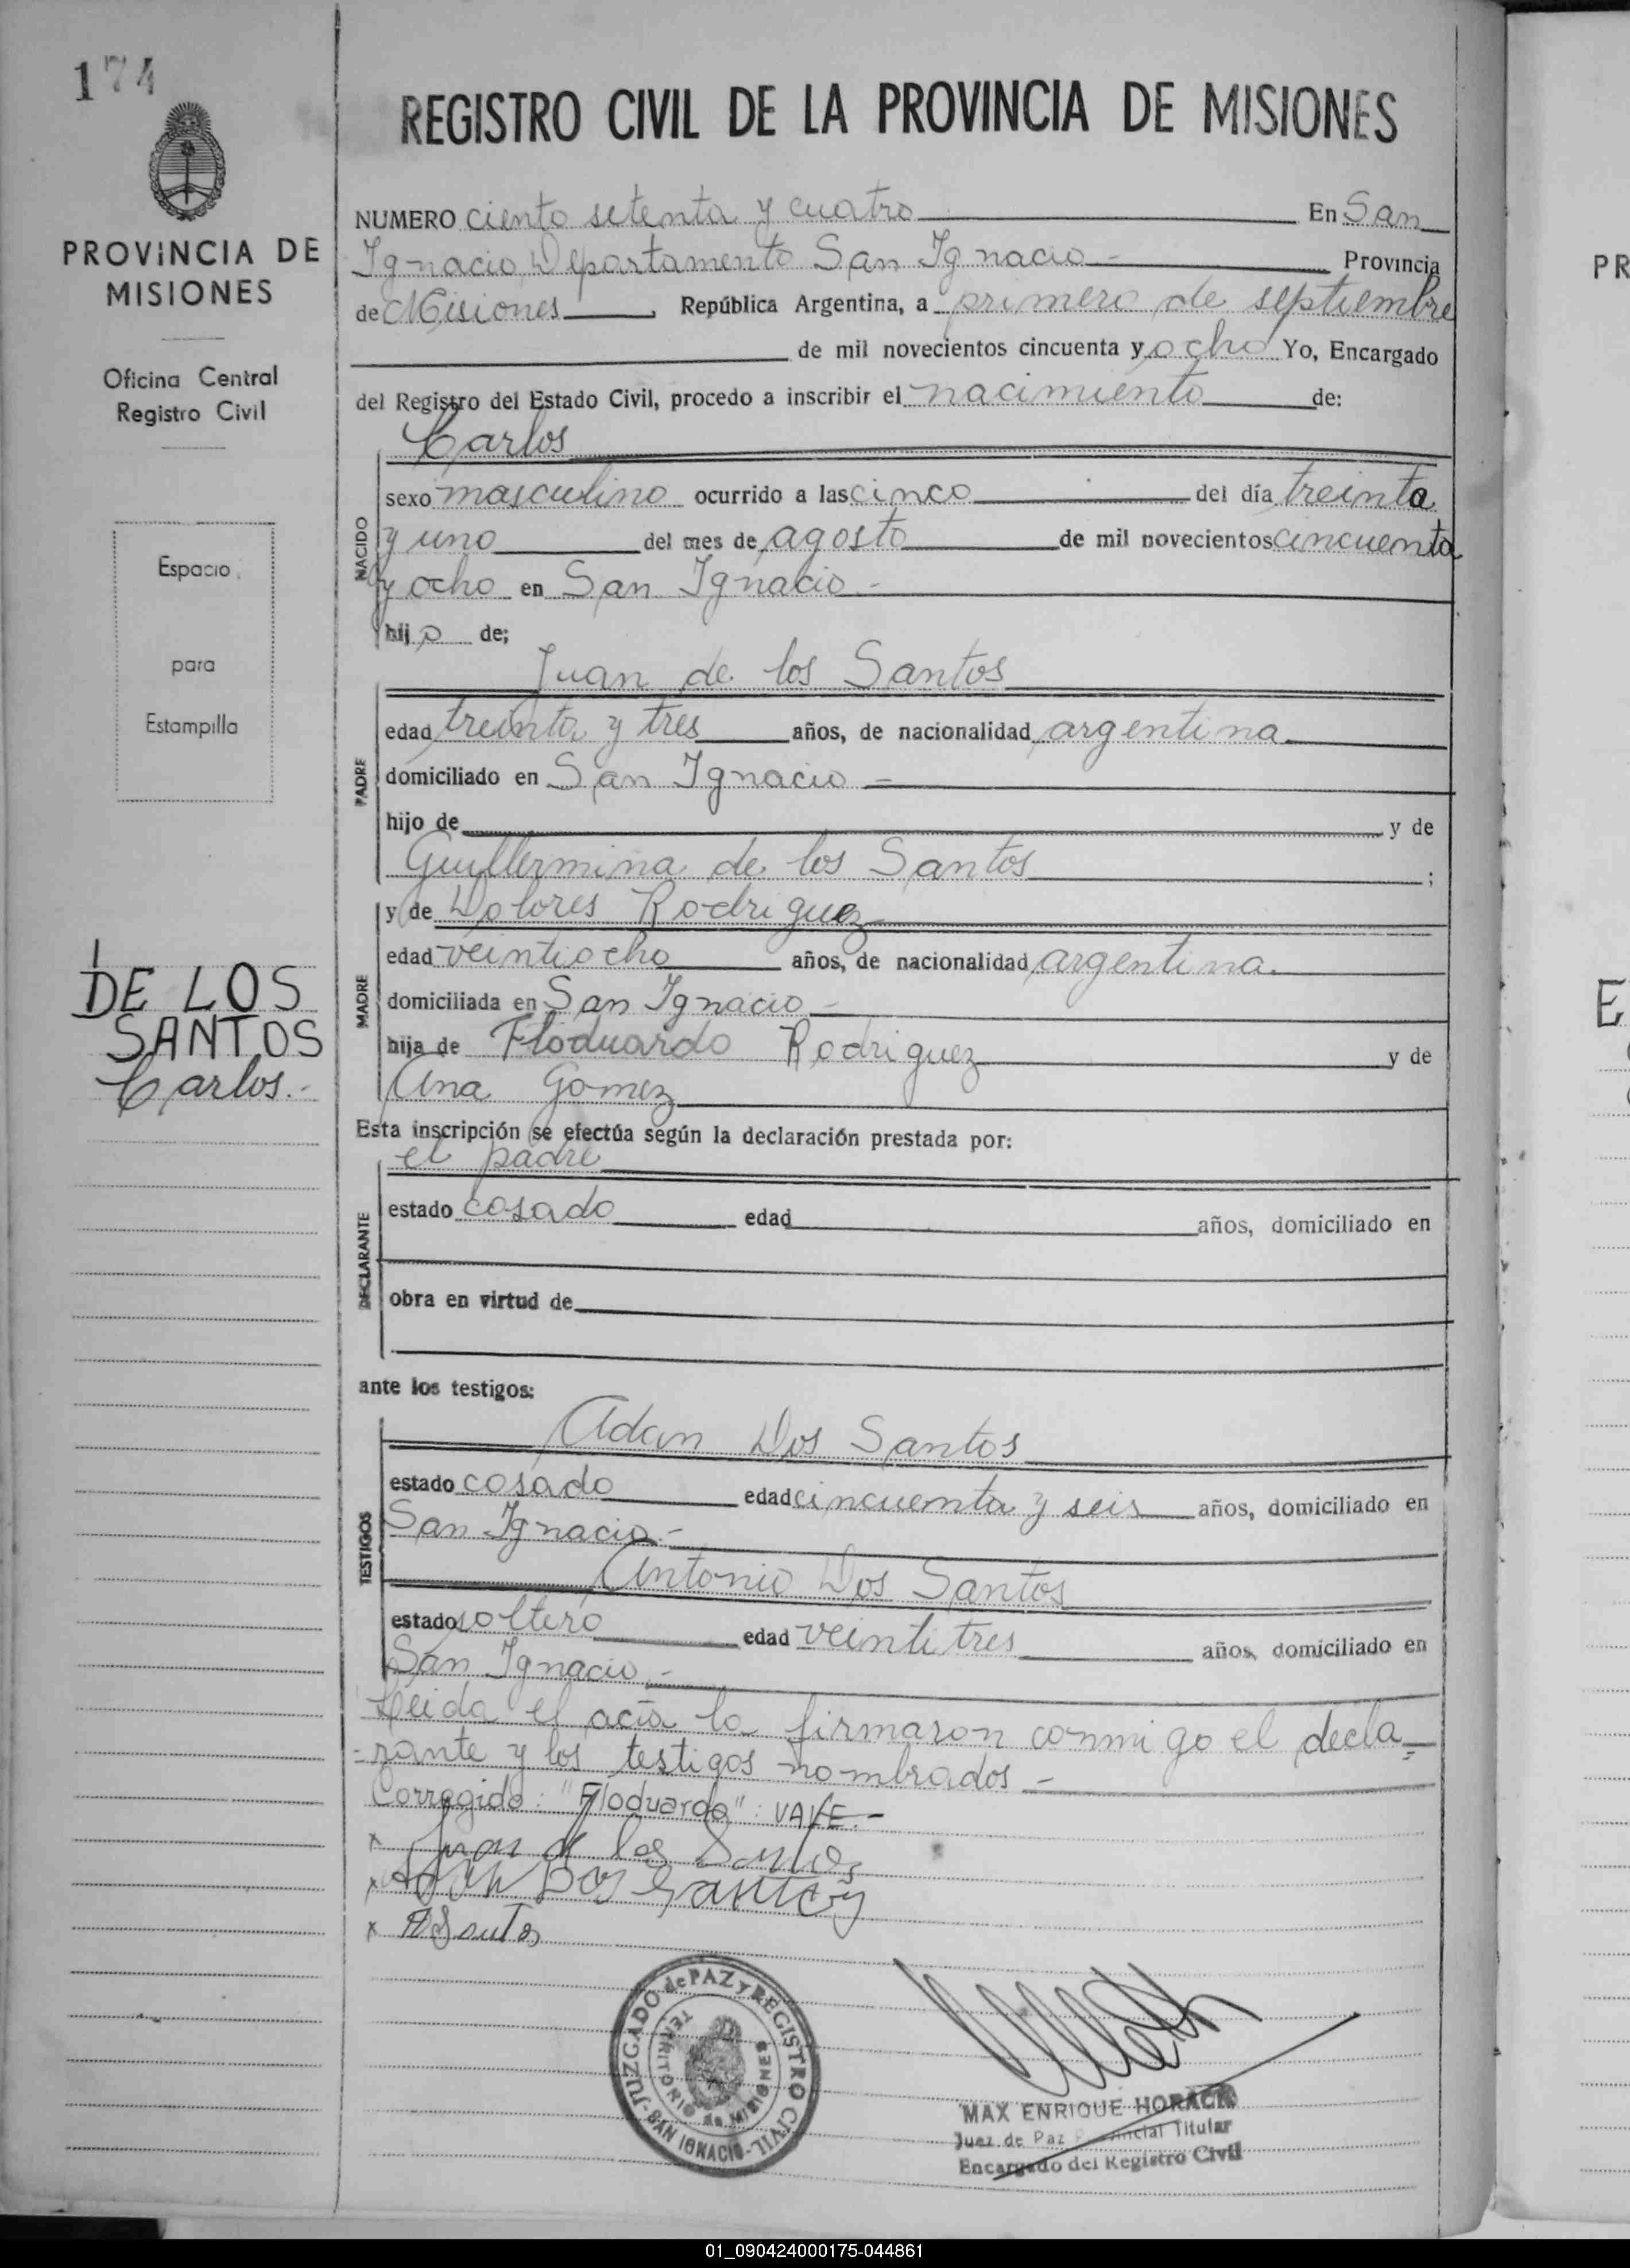 174
PROVINCIA DE
MISIONES
Oficina Central
Registro Civil
Espacio
para
Estampilla
DE LOS
SANTOS
Carlos.-
REGISTRO CIVIL DE LA PROVINCIA DE MISIONES
NUMERO ciento setenta y cuatro En San
Ignacio, Departamento San Ignacio - Provincia
de Misiones, República Argentina, a primero de septiembre
de mil novecientos cincuenta y ocho Yo, Encargado
del Registro del Estado Civil, procedo a inscribir el nacimiento de:
Carlos
NACIDO
sexo masculino ocurrido a las cinco del día treinta
y uno del mes de agosto de mil novecientos cincuenta
y ocho en San Ignacio -
hijo de;
Juan de los Santos
PADRE
edad treinta y tres años, de nacionalidad argentina
domiciliado en San Ignacio -
hijo de y de
Guillermina de los Santos ;
y de Dolores Rodriguez
MADRE
edad veintiocho años, de nacionalidad argentina.
domiciliada en San Ignacio -
hija de Floduardo Rodriguez y de
Ana Gomez
Esta inscripción se efectúa según la declaración prestada por:
el padre
DECLARANTE
estado casado edad años, domiciliado en
obra en virtud de
ante los testigos:
Adan Dos Santos
TESTIGOS
estado casado edad cincuenta y seis años, domiciliado en
San Ignacio -
Antonio Dos Santos
estado soltero edad veintitres años, domiciliado en
San Ignacio -
Leida el acta la firmaron conmigo el decla=
=rante y los testigos nombrados -
Corregido: "Floduardo": VALE.-
x Juan de los Santos
x Adan Dos Santos
x ADSantos
JUZGADO de PAZ y REGISTRO CIVIL - SAN IGNACIO -
TERRITORIO de MISIONES
MAX ENRIQUE HORACK
Juez de Paz Titular
Encargado del Registro Civil
PR
E
01_090424000175-044861